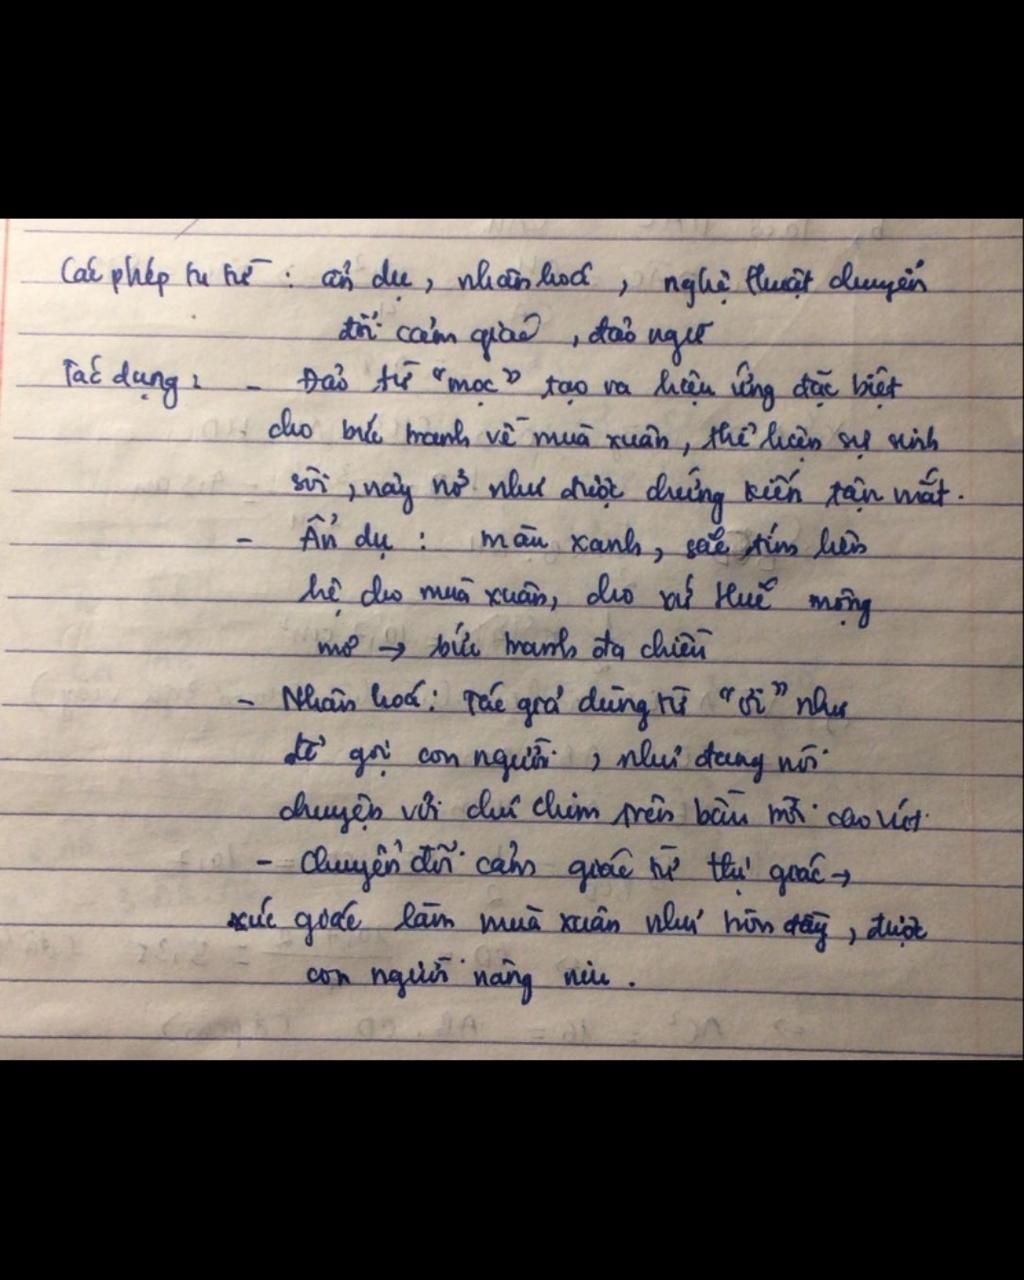 Các phép tu từ : ẩn dụ, nhân hoá, nghệ thuật chuyển
đổi cảm giác, đảo ngữ
Tác dụng : - Đảo từ "mọc" tạo ra hiệu ứng đặc biệt
cho bức tranh về mùa xuân, thể hiện sự sinh
sôi, nảy nở như được chứng kiến tận mắt.
- Ẩn dụ : màu xanh, sắc tím liên
hệ cho mùa xuân, cho xứ Huế mộng
mơ → bức tranh đa chiều
- Nhân hoá: Tác giả dùng từ "ơi" như
để gọi con người, như đang nói
chuyện với chú chim trên bầu trời cao vút.
- Chuyển đổi cảm giác từ thị giác →
xúc giác làm mùa xuân như tràn đầy, được
con người nâng niu.